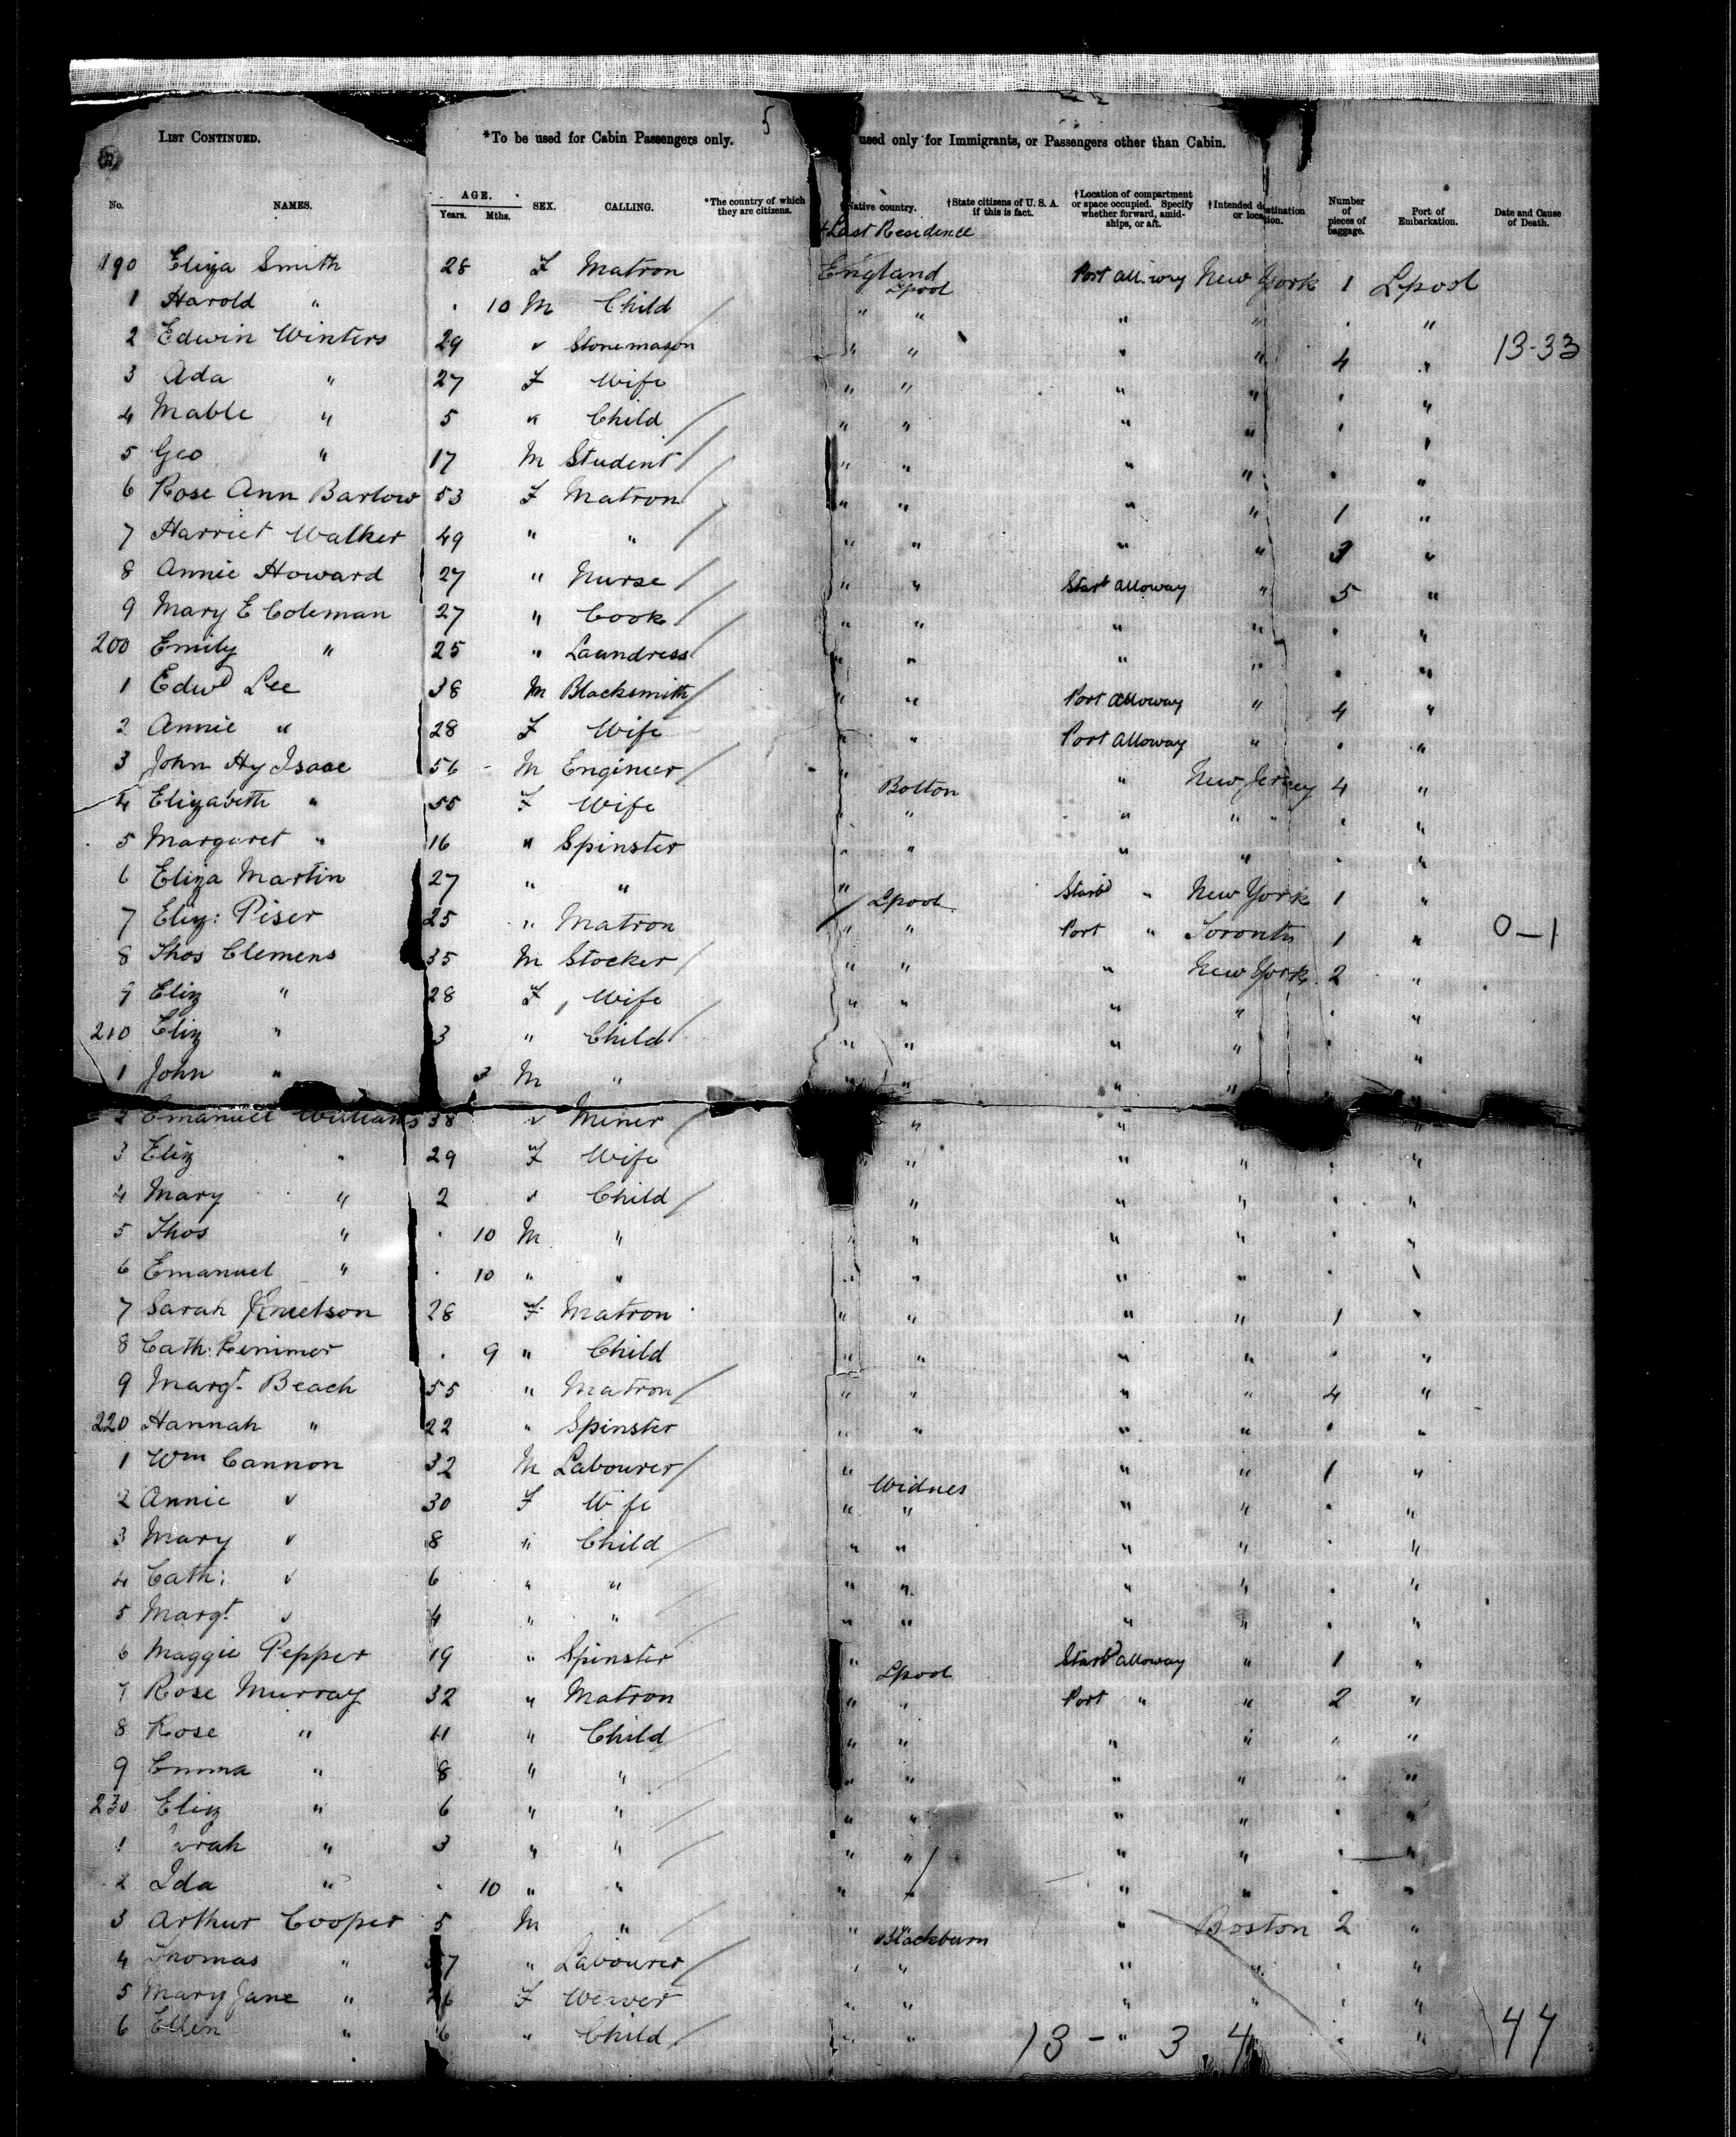 5
LIST CONTINUED. *To be used for Cabin Passengers only. used only for Immigrants, or Passengers other than Cabin.
No. NAMES. AGE. Years. Mths. SEX. CALLING. *The country of which they are citizens. Native country. †State citizens of U. S. A. if this is fact. †Location of compartment or space occupied. Specify whether forward, amidships, or aft. †Intended destination or location. Number of pieces of baggage. Port of Embarkation. Date and Cause of Death.
Last Residence
190 Eliza Smith 28 F Matron England Lpool Port All.way New York 1 Lpool
1 Harold " . 10 M Child " " " " . "
2 Edwin Winters 29 " Stonemason " " " " 4 " 13-33
3 Ada " 27 F Wife " " " " . "
4 Mable " 5 " Child " " " " . "
5 Geo " 17 M Student " " " " . "
6 Rose Ann Barlow 53 F Matron " " " " 1 "
7 Harriet Walker 49 " " " " " " 3 "
8 Annie Howard 27 " Nurse " " Starb alloway " 5 "
9 Mary E Coleman 27 " Cook " " " " . "
200 Emily " 25 " Laundress " " " " . "
1 Edwd Lee 38 M Blacksmith " " Port Alloway " 4 "
2 Annie " 28 F Wife " " Port Alloway " . "
3 John Hy Isaac 56 - M Engineer " Bolton " New Jersey 4 "
4 Elizabeth " 55 F Wife " " " " . "
5 Margaret " 16 " Spinster " " " " . "
6 Eliza Martin 27 " " " Lpool Starbd " New York 1 "
7 Eliz: Piser 25 " Matron " " Port " Toronto 1 " 0-1
8 Thos Clemens 35 M Stocker " " " New York 2 "
9 Eliz " 28 F Wife " " " " . "
210 Eliz " 3 " Child " " " " . "
1 John " 3 M " " " " " . "
2 Emanuel Williams 38 " Miner " " "
3 Eliz " 29 F Wife " " " " . "
4 Mary " 2 " Child " " " . "
5 Thos " . 10 M " " " " " . "
6 Emanuel " . 10 " " " " " " . "
7 Sarah Knuetson 28 F Matron " " " " 1 "
8 Cath: Rimmer . 9 " Child " " " " . "
9 Margt. Beach 55 " Matron " " " " 4 "
220 Hannah " 22 " Spinster " " " " . "
1 Wm Cannon 32 M Labourer " Widnes " " 1 "
2 Annie " 30 F Wife " " " " . "
3 Mary " 8 " Child " " " " . "
4 Cath: " 6 " " " " " " . "
5 Margt. " 4 " " " " " " . "
6 Maggie Pepper 19 " Spinster " Lpool Starbd alloway " 1 "
7 Rose Murray 32 " Matron " " Port " " 2 "
8 Rose " 11 " Child " " " " " "
9 Emma " 8 " " " " " " " "
230 Eliz " 6 " " " " " " . "
1 arah " 3 " " " " " " . "
2 Ida " . 10 " " " " " " . "
3 Arthur Cooper 5 M " " Blackburn " Boston 2 "
4 Thomas " 7 " Labourer " " " " . "
5 Mary Jane " 6 F Weaver " " " " . "
6 Ellen " 6 " Child " " " . "
13 - 3 4 44